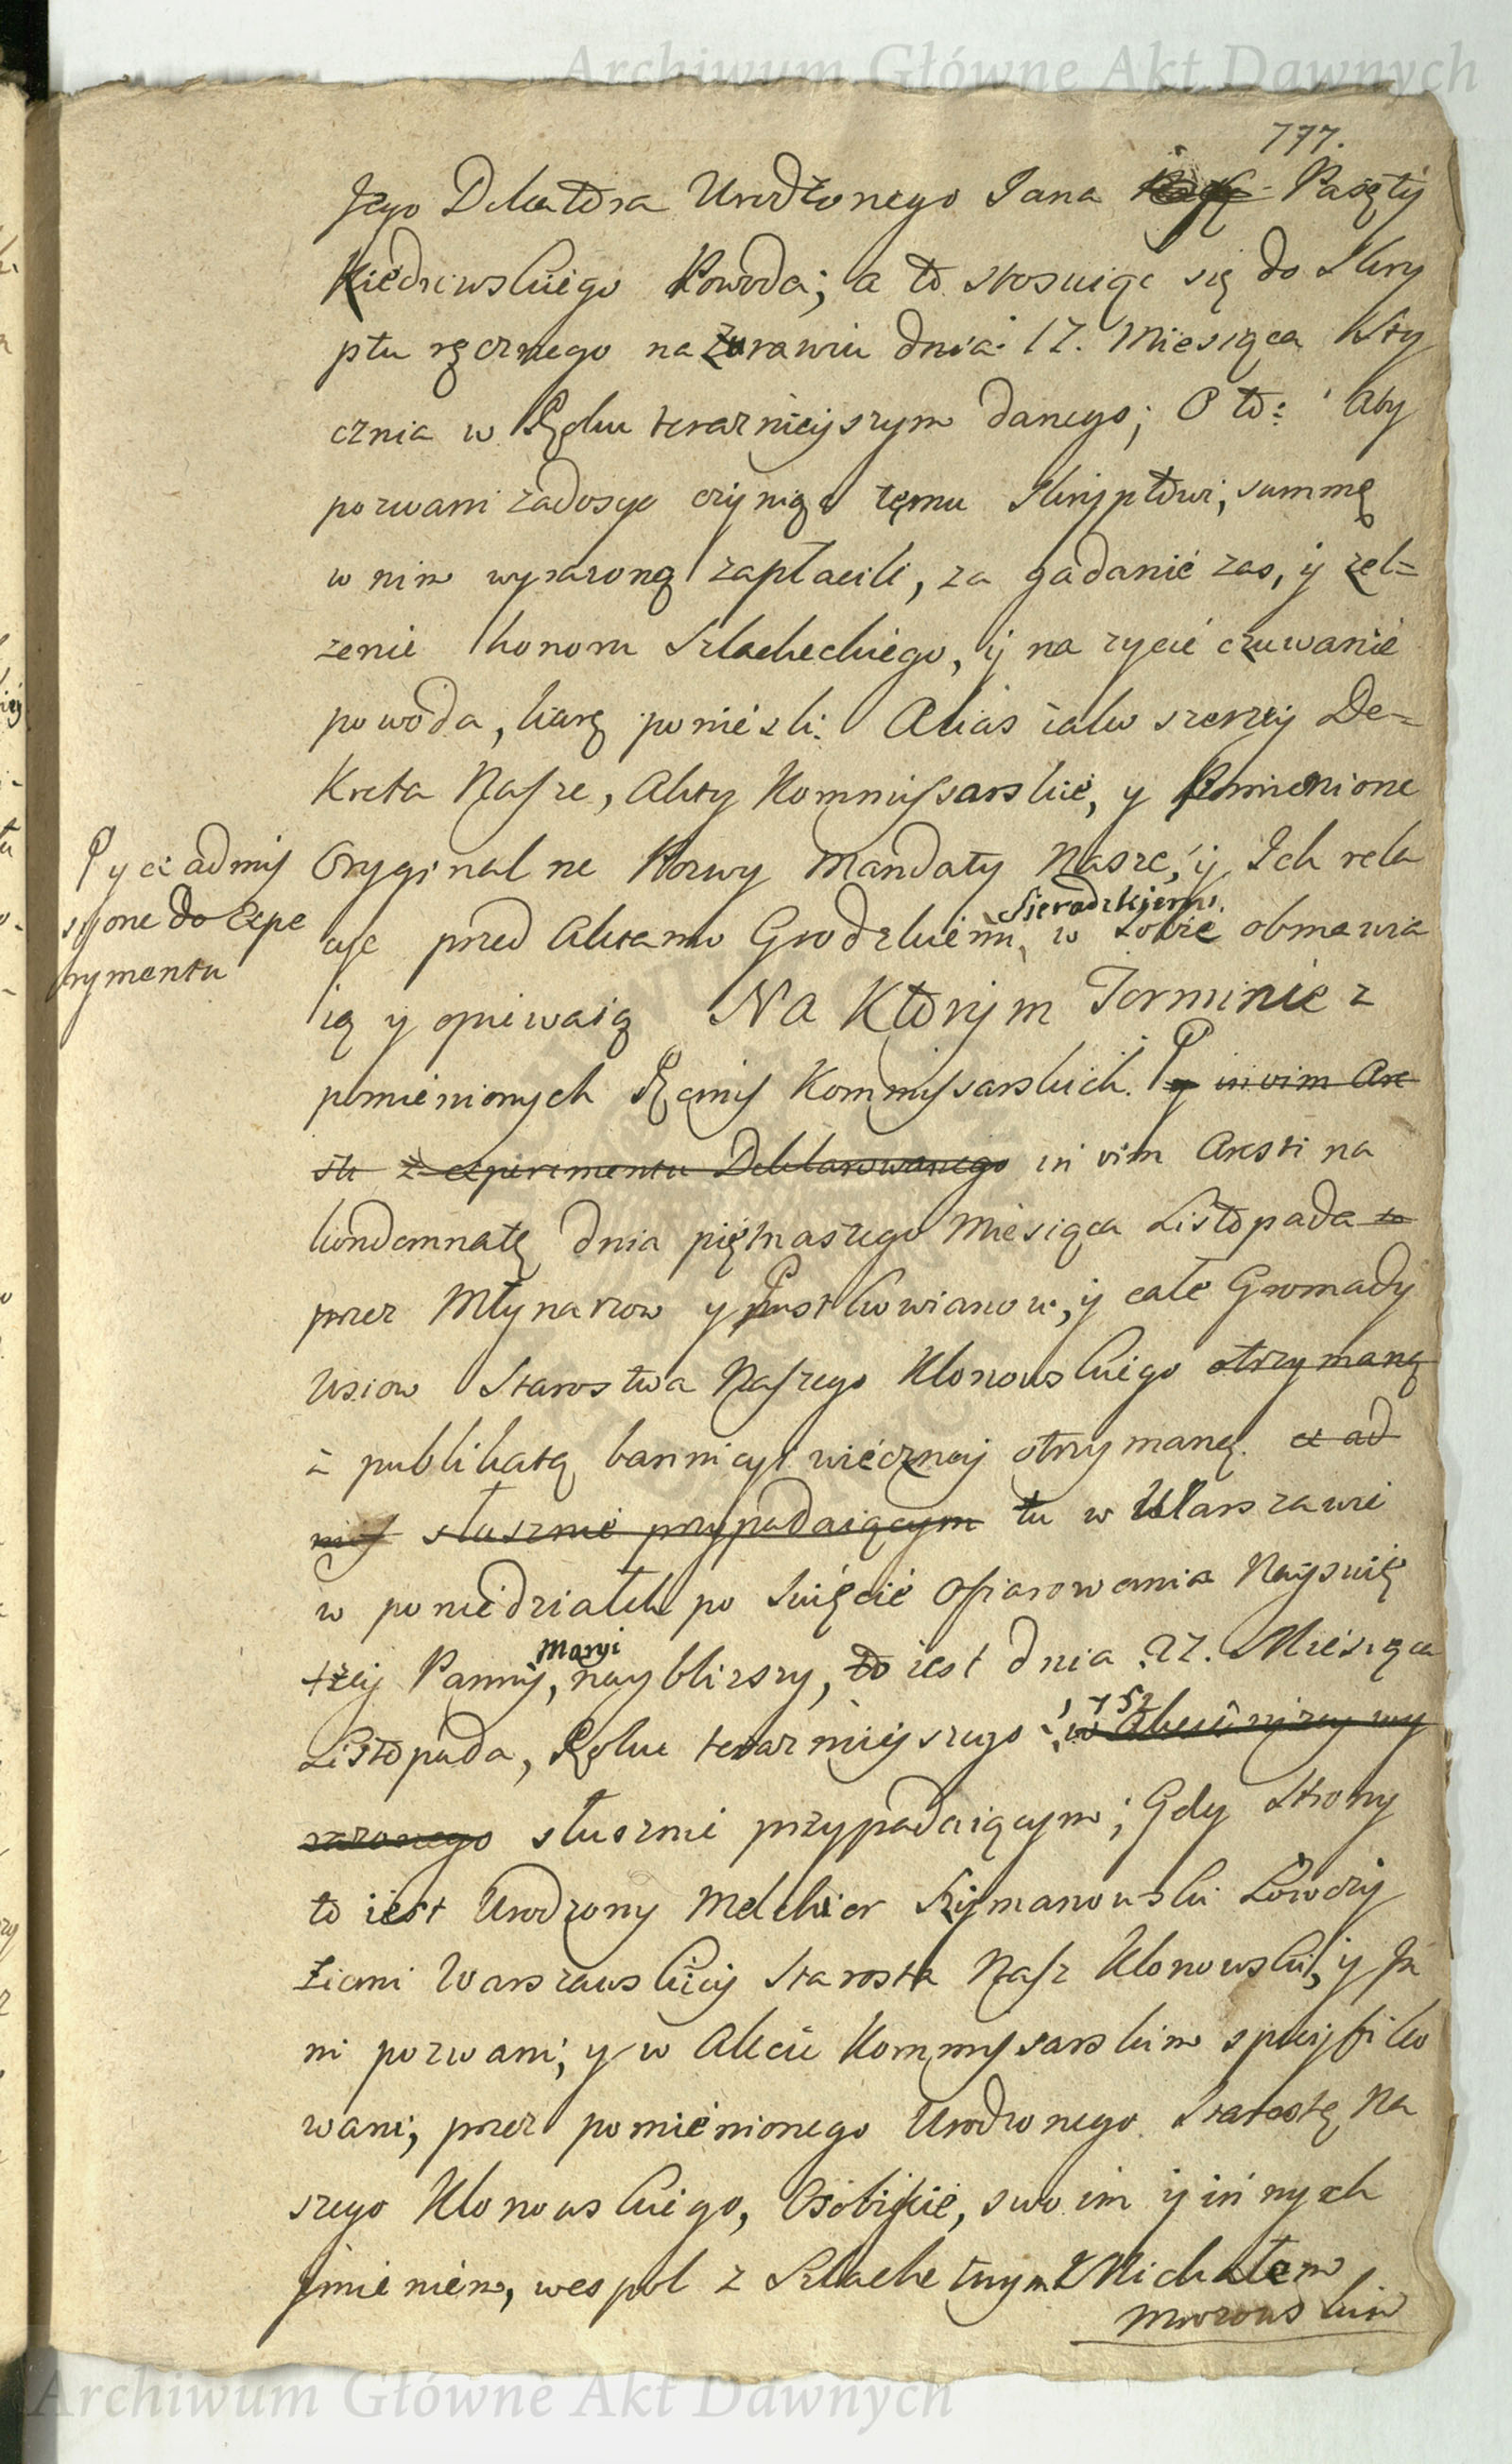 Archiwum Główne Akt Dawnych
777.
Jego Delatora Urodzonego Jana Paszty
Kiedrzwskiego Powoda; a to stosuiąc się do Skry
ptu ręcznego na Zurawiu dnia 17. Miesiąca Sty
cznia w Roku terazniejszym danego; O to: Aby
pozwani zadosyc czyniąc temu Skryptowi, summę
w nim wyrazoną zapłacili, za gadanie zas, y zel=
zenie honoru Szlacheckiego, y na zycie czuwanie
powoda, karę poniesli: Alias iako szerzey De=
kreta Nasze, Akty Kommissarskie, y Pomienione
Oryginalne Pozwy Mandaty Nasze, y Ich rela
cye przed Aktami Grodzkiemi Sieradzkiemi w sobie obmawia
ią y opiewaią Na Którym Terminie z
pomienionych Remiss Kommissarskich. y in vim Are
sti z experimentu Deklarowanego in vim Aresti na
kondemnatę dnia piętnastego Miesiąca Listopada to
przez Młynarzow y Pustkowianow, y całe Gromady
Wsiow Starostwa Naszego Klonowskiego otrzymaną
a publikatą bannicyi wieczney otrzymaną. et ad
miss słusznie przypadaiącym tu w Warszawie
w poniedziałek po Swięcie Ofiarowania Nayswię
tzey Panny Maryi, nayblizszy, to iest dnia 27. Miesiąca
Listopada, Roku terazniejszego 1752 w Akcie nizey wy
razonego słusznie przypadaiącym; Gdy Strony
to iest Urodzony Melchior Szymanowski Łowczy
Ziemi Warszawskiey Starosta Nasz Klonowski, y In
ni pozwani, y w Akcie Kommissarskim specyfiko
wani, przez pomienionego Urodzonego Starostę Na
szego Klonowskiego, Osobiscie, swoim y innych
Jmieniem, wespoł z Szlachetnym Michałem
Mrozowskim
y ci admis
syone do Expe
rymentu
Archiwum Główne Akt Dawnych